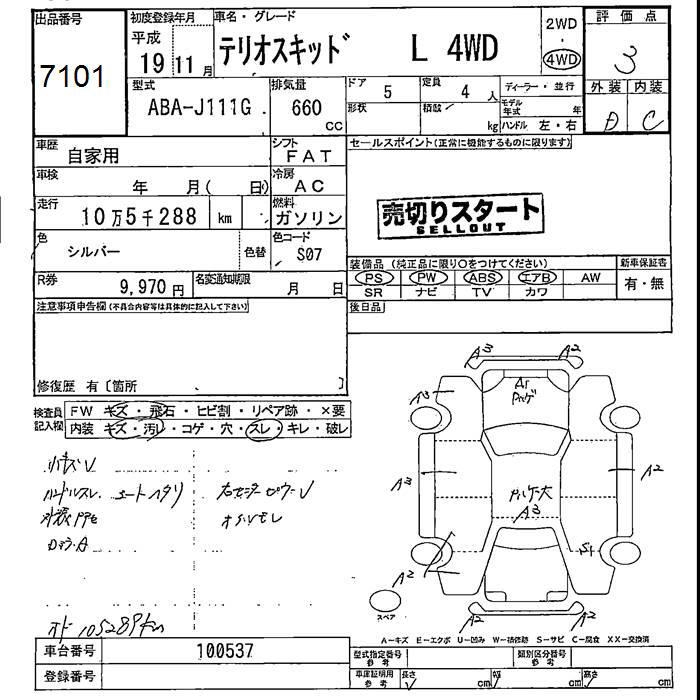 出品番号
7101
初度登録年月
平成
19 11 月
車名・グレード
テリオスキッド L 4WD
2WD
・
4WD
評価点
3
外装 内装
D C
型式
ABA-J111G
排気量
660
CC
ドア 5
形状
定員 4 人
積載
kg
ディーラー・並行
モデル年式 年
ハンドル 左・右
車歴
自家用
シフト
FAT
車検
年 月( 日)
冷房
AC
走行
10万5千288 km
燃料
ガソリン
色
シルバー
色替
色コード
S07
R券
9,970 円
名変通知期限
月 日
セールスポイント(正常に機能するものに限ります)
売切りスタート
SELLOUT
装備品 (純正品に限り○をつけてください)
PS PW ABS エアB AW
SR ナビ TV カワ
新車保証書
有・無
後日品
注意事項申告欄(不具合内容等は具体的に記入して下さい)
修復歴 有〔箇所 〕
検査員
記入欄
FW キズ・飛石・ヒビ割・リペア跡・×要
内装 キズ・汚レ・コゲ・穴・スレ・キレ・破レ
小キズ
ハンドルスレ シートヘタリ
オド 105289km
A3 A2
A3
A2
A3
A3
A2
A2
A2
スペア
A−キズ E−エクボ U−凹み W−補修跡 S−サビ C−腐食 XX−交換済
車台番号
100537
登録番号
型式指定番号
参考
類別区分番号
参考
車庫証明用
参考
長さ cm 幅 cm 高さ cm